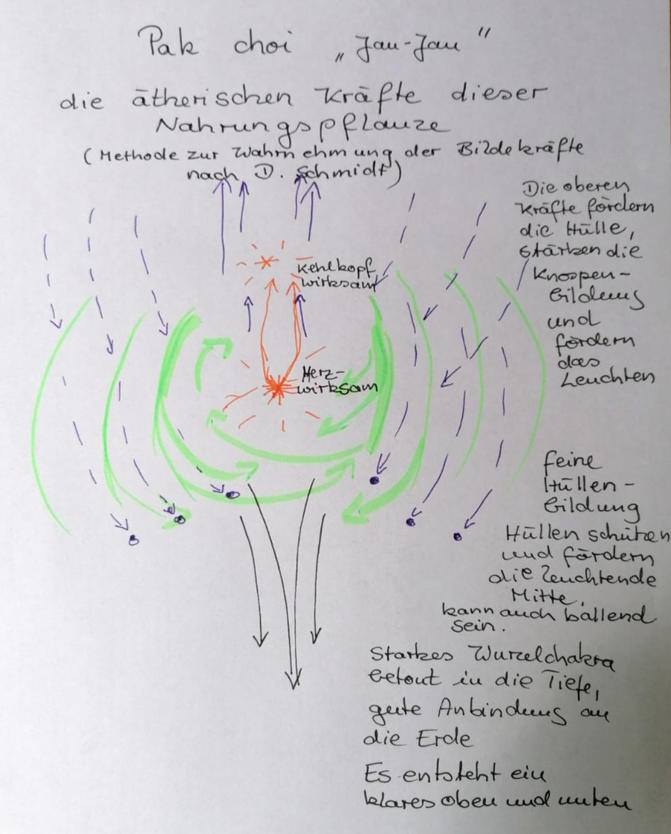 Pak choi „Jau-Jau“
die ätherischen Kräfte dieser
Nahrungspflanze
(Methode zur Wahrnehmung der Bildekräfte
nach D. Schmidt)
Die oberen
Kräfte fördern
die Hülle,
stärken die
Knospen-
bildung
und
fördern
das
Leuchten
Kehlkopf
wirksam
Herz-
wirksam
feine
Hüllen-
bildung
Hüllen schützen
und fördern
die leuchtende
Mitte,
kann auch ballend
sein.
Starkes Wurzelchakra
betont in die Tiefe,
gute Anbindung an
die Erde
Es entsteht ein
klares oben und unten